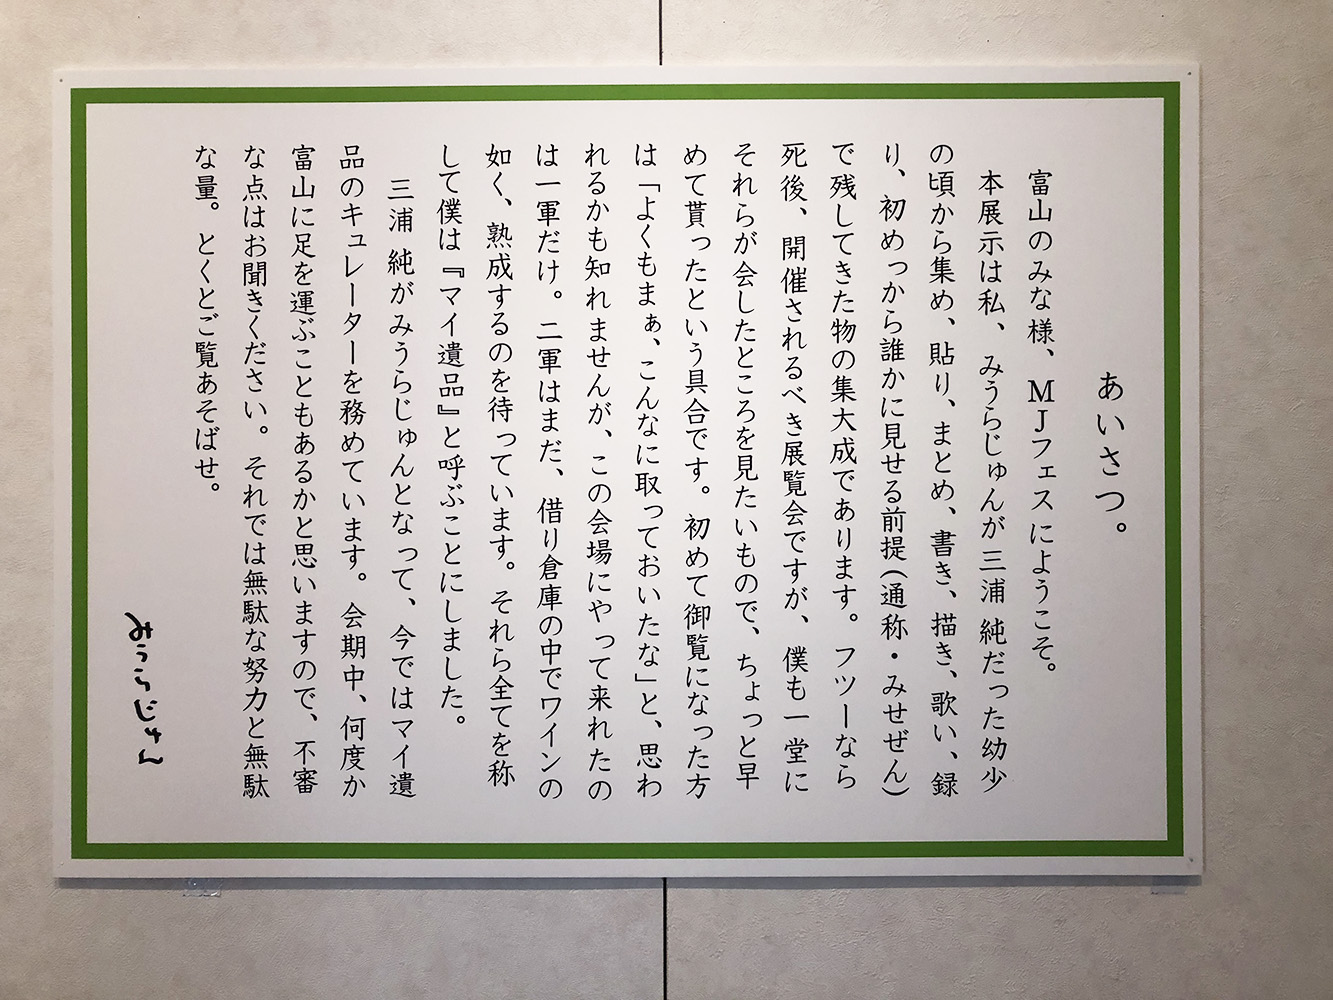 あいさつ。
富山のみな様、MJフェスにようこそ。
本展示は私、みうらじゅんが三浦 純だった幼少
の頃から集め、貼り、まとめ、書き、描き、歌い、録
り、初めっから誰かに見せる前提(通称・みせぜん)
で残してきた物の集大成であります。フツーなら
死後、開催されるべき展覧会ですが、僕も一堂に
それらが会したところを見たいもので、ちょっと早
めて貰ったという具合です。初めて御覧になった方
は「よくもまぁ、こんなに取っておいたな」と、思わ
れるかも知れませんが、この会場にやって来れたの
は一軍だけ。二軍はまだ、借り倉庫の中でワインの
如く、熟成するのを待っています。それら全てを称
して僕は『マイ遺品』と呼ぶことにしました。
三浦 純がみうらじゅんとなって、今ではマイ遺
品のキュレーターを務めています。会期中、何度か
富山に足を運ぶこともあるかと思いますので、不審
な点はお聞きください。それでは無駄な努力と無駄
な量。とくとご覧あそばせ。
みうらじゅん